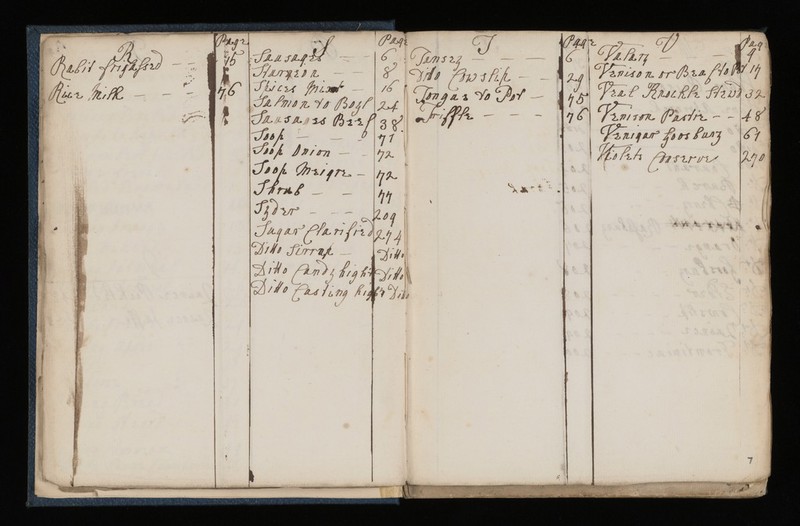 R Page
Rabit frighsed — 75
Rice Milk — — — 76
S Page
Sausages — — 6
Sturgeon — — 8
Slices Minst — 16
Salmon to Boyl 24
Sausages Beef 38
Soop — — 71
Soop Onion — — 72
Soop Meigre — 72
Shrub — — 77
Syder — — — 209
Sugar Clarified 274
Ditto Sirrup — Ditto
Ditto Candy hight Ditto
Ditto Casting hight Ditto
T Page
Tansey — — — 6
Ditto Cowslip — — 29
Tongas to Pot — 75
Triffle — — — 76
V Page
Venison or Beaf to 17
Veal Knockle Stewd 32
Venison Pastie — — 48
Venigar Goosbury 61
Violets Conserve 270
7